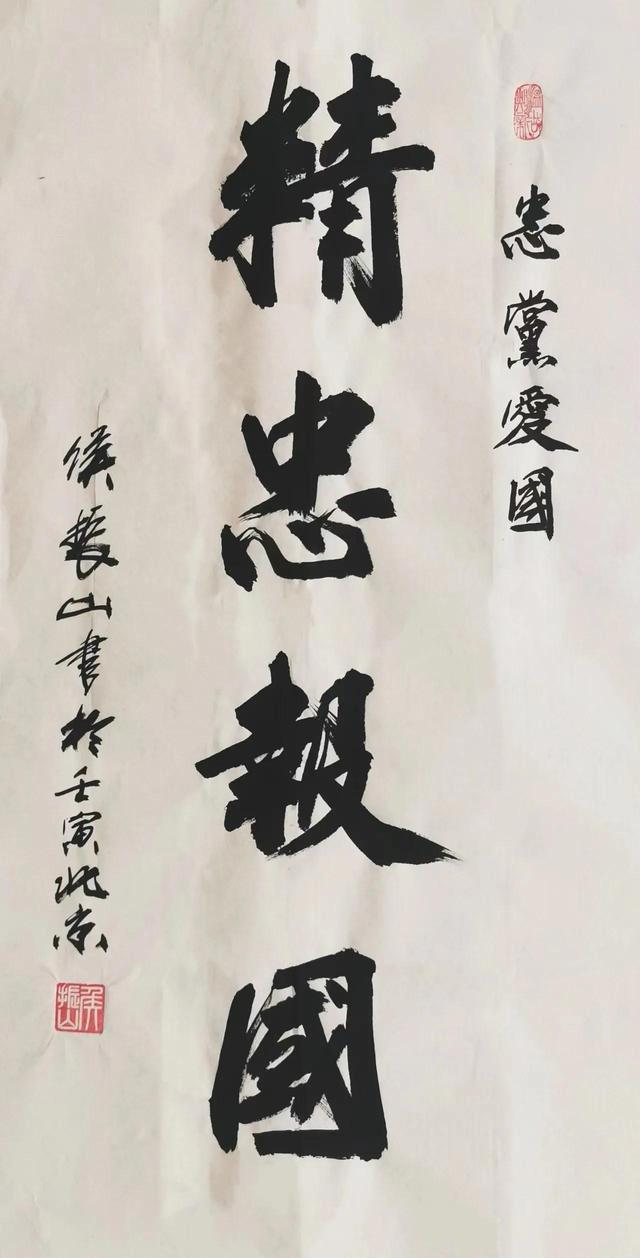 忠黨愛國
精忠報國
侯振山書於壬寅北京
侯振山